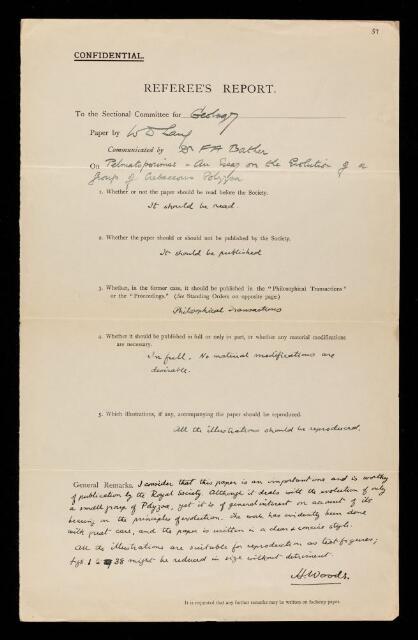 57
CONFIDENTIAL.
REFEREE'S REPORT.
To the Sectional Committee for Geology
Paper by W D Lang
Communicated by Dr F A Bather
On Pelmatoporinae - An Essay on the Evolution of a
group of Cretaceous Polyzoa
1. Whether or not the paper should be read before the Society.
It should be read.
2. Whether the paper should or should not be published by the Society.
It should be published
3. Whether, in the former case, it should be published in the "Philosophical Transactions"
or the "Proceedings." (See Standing Orders on opposite page.)
Philosophical Transactions
4. Whether it should be published in full or only in part, or whether any material modifications
are necessary.
In full. No material modifications are
desirable.
5. Which illustrations, if any, accompanying the paper should be reproduced.
All the illustrations should be reproduced.
General Remarks. I consider that this paper is an important one and is worthy
of publication by the Royal Society. Although it deals with the evolution of only
a small group of Polyzoa, yet it is of general interest on account of its
bearing on the principles of evolution. The work has evidently been done
with great care, and the paper is written in a clear & concise style.
All the illustrations are suitable for reproduction as text-figures;
figs. 1 to 38 might be reduced in size without detriment.
H. Woods.
It is requested that any further remarks may be written on fucheony paper.